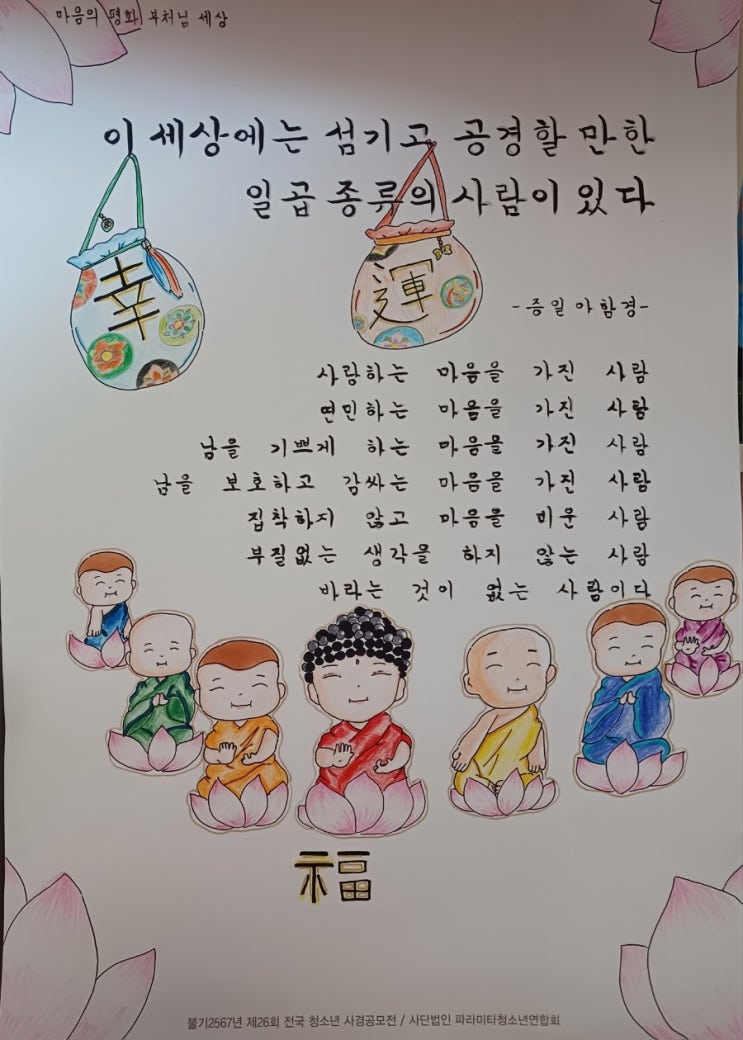 마음의 평화 부처님 세상
이 세상에는 섬기고 공경할 만한
일곱 종류의 사람이 있다
幸
運
-증일아함경-
사랑하는 마음을 가진 사람
연민하는 마음을 가진 사람
남을 기쁘게 하는 마음을 가진 사람
남을 보호하고 감싸는 마음을 가진 사람
집착하지 않고 마음을 비운 사람
부질없는 생각을 하지 않는 사람
바라는 것이 없는 사람이다
福
불기2567년 제26회 전국 청소년 사경공모전 / 사단법인 파라미타청소년연합회